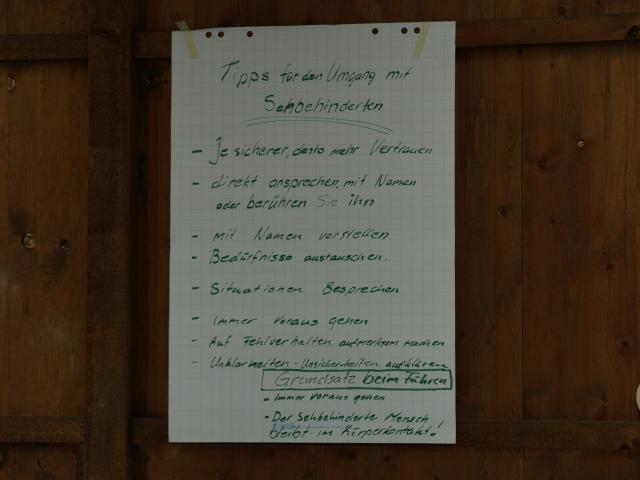 Tipps für den Umgang mit
Sehbehinderten
- Je sicherer, desto mehr Vertrauen
- direkt ansprechen, mit Namen
oder berühren Sie ihn
- mit Namen vorstellen
- Bedürfnisse austauschen.
- Situationen Besprechen
- Immer voraus gehen
- Auf Fehlverhalten aufmerksam machen
- Unklarheiten - Unsicherheiten aufklären
Grundsatz beim Führen
- Immer voraus gehen
- Der Sehbehinderte Mensch
bleibt im Körperkontakt!